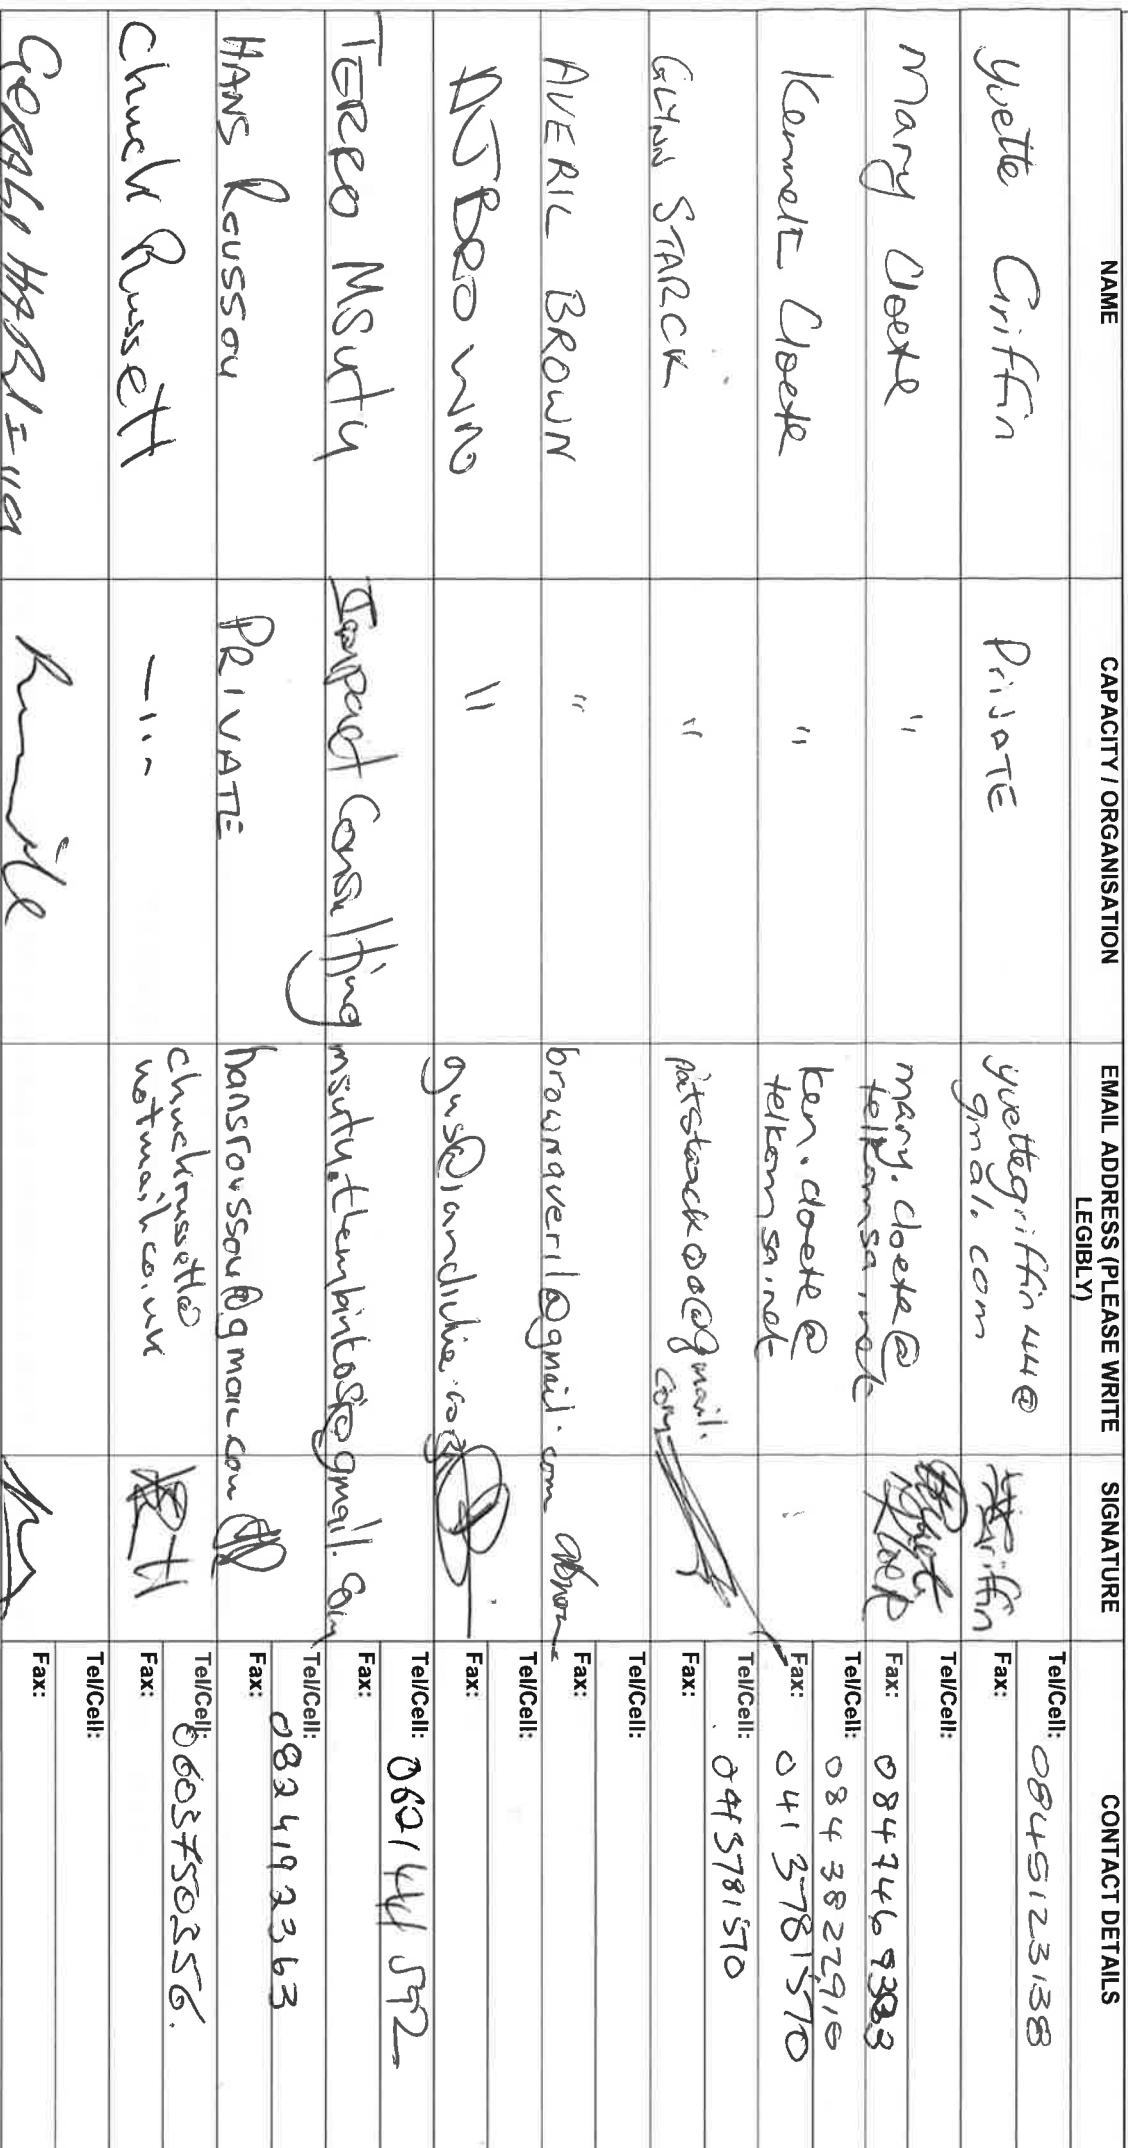 NAME
CAPACITY / ORGANISATION
EMAIL ADDRESS (PLEASE WRITE
LEGIBLY)
SIGNATURE
CONTACT DETAILS
Yvette Griffin
PriVATE
yvettegriffin44@
gmail.com
Griffin
Tel/Cell: 0845123138
Fax:
Mary Cloete
"
mary.cloete@
telkomsa.net
Tel/Cell:
Fax:
Kennett Cloete
"
ken.cloete@
telkomsa.net
Tel/Cell: 084 3822910
Fax: 041 3781570
GLYNN STARCK
"
Tel/Cell: 0413781570
Fax:
AVERIL BROWN
"
brownaveril@gmail.com
Tel/Cell:
Fax:
AJ BROWN
"
Tel/Cell:
Fax:
TERRO MSutu
Impact Consulting
msutu.thembinkosi@gmail.com
Tel/Cell:
Fax:
HANS Roussou
PRIVATE
hansroussou@gmail.com
Tel/Cell: 0824192363
Fax:
Chuck Russett
-"-
chuckrussett@
hotmail.co.uk
Tel/Cell: 0603750356.
Fax:
Tel/Cell:
Fax: